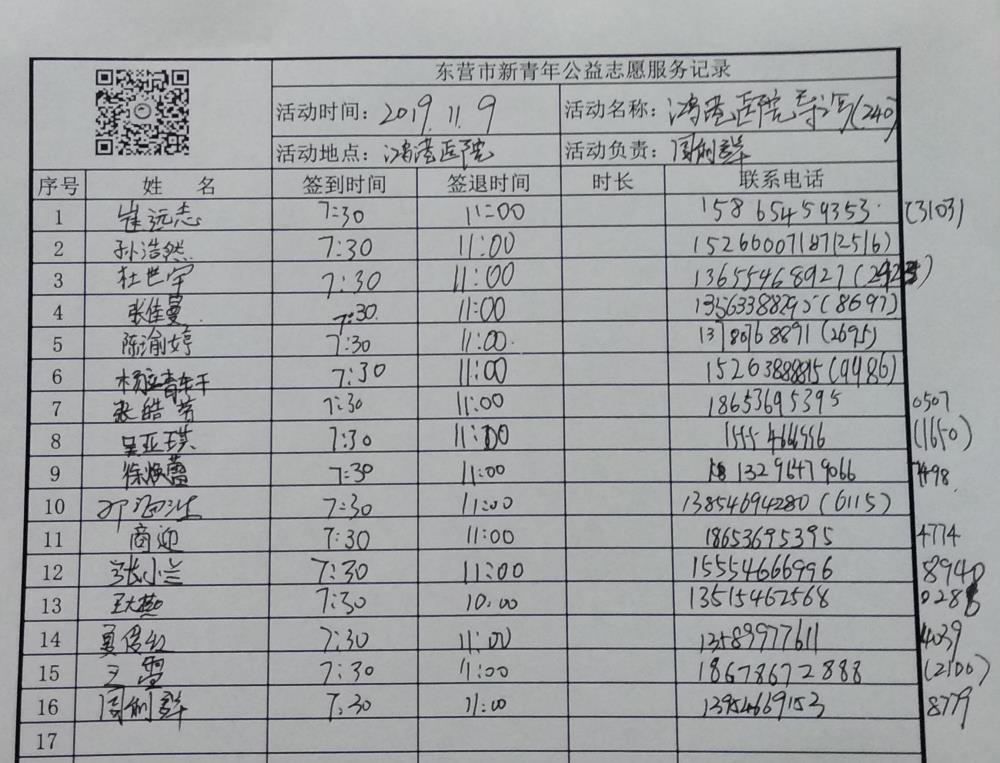 东营市新青年公益志愿服务记录
活动时间：2019.11.9 活动名称：鸿港医院导诊(240)
活动地点：鸿港医院 活动负责：周利群
序号 姓 名 签到时间 签退时间 时长 联系电话
1 崔远志 7:30 11:00 15865459353 (3103)
2 孙浩然 7:30 11:00 15266007187(2516)
3 杜世宇 7:30 11:00 13655468927
4 张佳曼 7:30 11:00 13563388295(8697)
5 陈渝婷 7:30 11:00 13780768891(2695)
6 7:30 11:00 15263888895(9986)
7 张皓芳 7:30 11:00 18653695395 0507
8 吴亚琪 7:30 11:00 (1650)
9 徐焕蕾 7:30 11:00 13296479066
10 邓海 7:30 11:00 13854694280(6115)
11 商迎 7:30 11:00 18653695395 4774
12 张小兰 7:30 11:00 15554666996 8940
13 7:30 10:00 13515462568
14 7:30 11:00 13589977611 4039
15 王雪 7:30 11:00 18678672888 (2100)
16 周利群 7:30 11:00 13954669153 8779
17